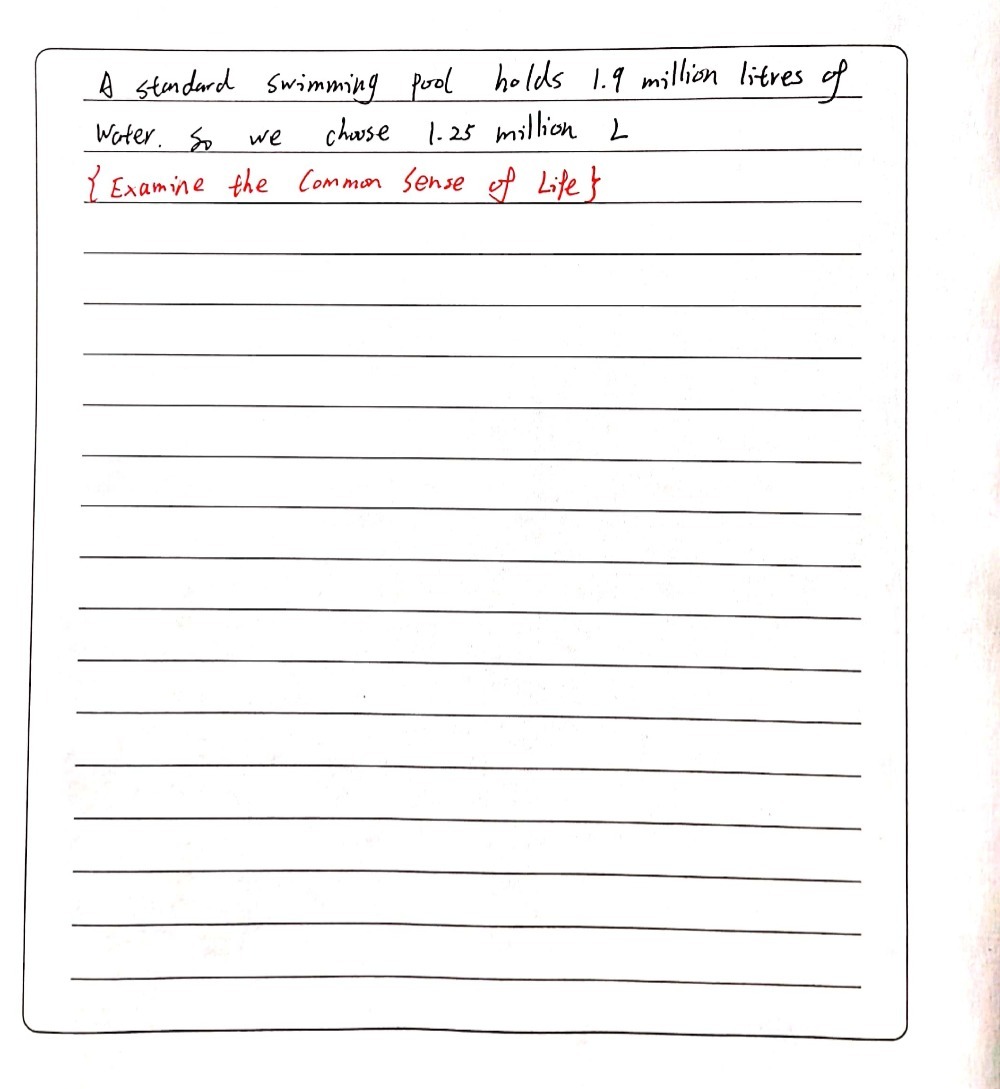 A standard swimming pool holds 1.9 million litres of
water. So we choose 1.25 million L
{Examine the Common Sense of Life}